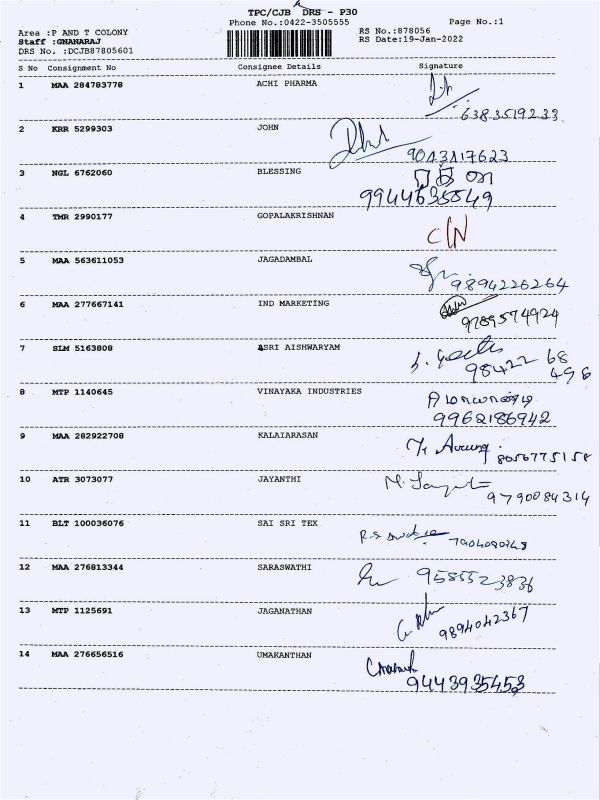 TPC/CJB DRS - P30
Phone No.:0422-3505555 Page No.:1
Area :P AND T COLONY RS No.:878056
Staff :GNANARAJ RS Date:19-Jan-2022
DRS No. :DCJB87805601
S No Consignment No Consignee Details Signature
1 MAA 284783778 ACHI PHARMA
6383519233
2 KRR 5299303 JOHN
9013117623
3 NGL 6762060 BLESSING
9944635849
4 TMR 2990177 GOPALAKRISHNAN
C/N
5 MAA 563611053 JAGADAMBAL
9894226264
6 MAA 277667141 IND MARKETING
9789574924
7 SLM 5163808 ASRI AISHWARYAM
98422 68
496
8 MTP 1140645 VINAYAKA INDUSTRIES
9962186942
9 MAA 282922708 KALAIARASAN
8056775158
10 ATR 3073077 JAYANTHI
9790084314
11 BLT 100036076 SAI SRI TEX
12 MAA 276813344 SARASWATHI
9585523836
13 MTP 1125691 JAGANATHAN
9894042367
14 MAA 276656516 UMAKANTHAN
9443935453